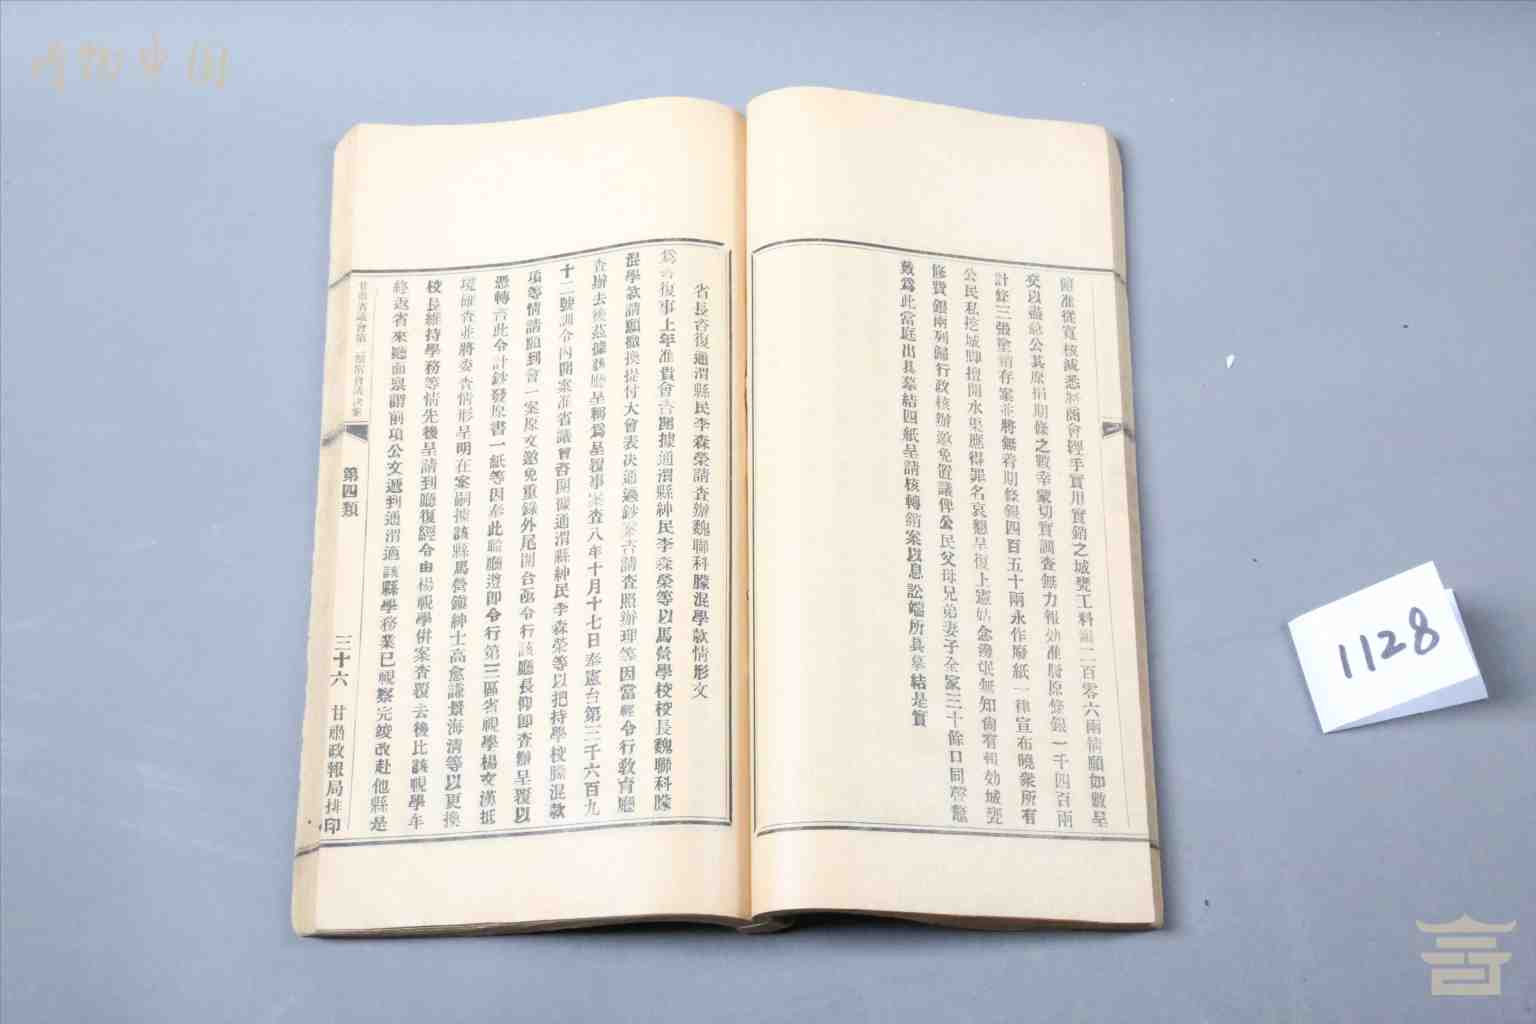 博物中国
節准從寬核減悉將商會經手實用實銷之城甕工料銀二百零六兩情願如數呈
交以盡急公其原捐期條之數幸蒙切實調查無力報効准將原條銀一千四百兩
計條三張塗銷存案並將無着期條銀四百五十兩永作廢紙一律宣布曉衆所有
公民私挖城脚擅開水渠應得罪名哀懇呈復上憲姑念邊氓無知尙有報効城甕
修費銀兩列歸行政核辦邀免置議俾公民父母兄弟妻子全家三十餘口同聲鼇
戴爲此當庭出具摹結四紙呈請核轉銷案以息訟端所具摹結是實
省長咨復通渭縣民李森榮請查辦魏聯科朦混學款情形文
爲咨復事上年准貴會咨開據通渭縣紳民李森榮等以馬營學校校長魏聯科朦
混學款請願撤換提付大會表决通過鈔案咨請查照辦理等因當經令行敎育廳
查辦去後茲據該廳呈稱爲呈覆事案查八年十月十七日奉憲台第三千六百九
十二號訓令內開案准省議會咨開據通渭縣紳民李森榮等以把持學校朦混款
項等情請願到會一案原文邀免重錄外尾開合亟令行該廳長仰即查辦呈覆以
憑轉咨此令計鈔發原書一紙等因奉此職廳遵即令行第三區省視學楊文漢抵
境確查並將委查情形呈明在案嗣據該縣馬營鎭紳士高愈謙景海淸等以更換
校長維持學務等情先後呈請到廳復經令由楊視學併案查覆去後比該視學年
終返省來廳面稟謂前項公文遞到通渭適該縣學務業已視察完竣改赴他縣是
甘肅省議會第二期常會議决案
第四類
三十六
甘肅政報局排印
1128